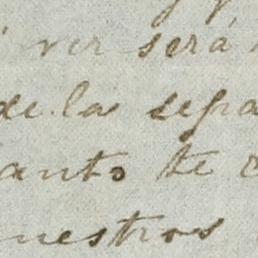 ver será
de la sepa
anto te
nuestros